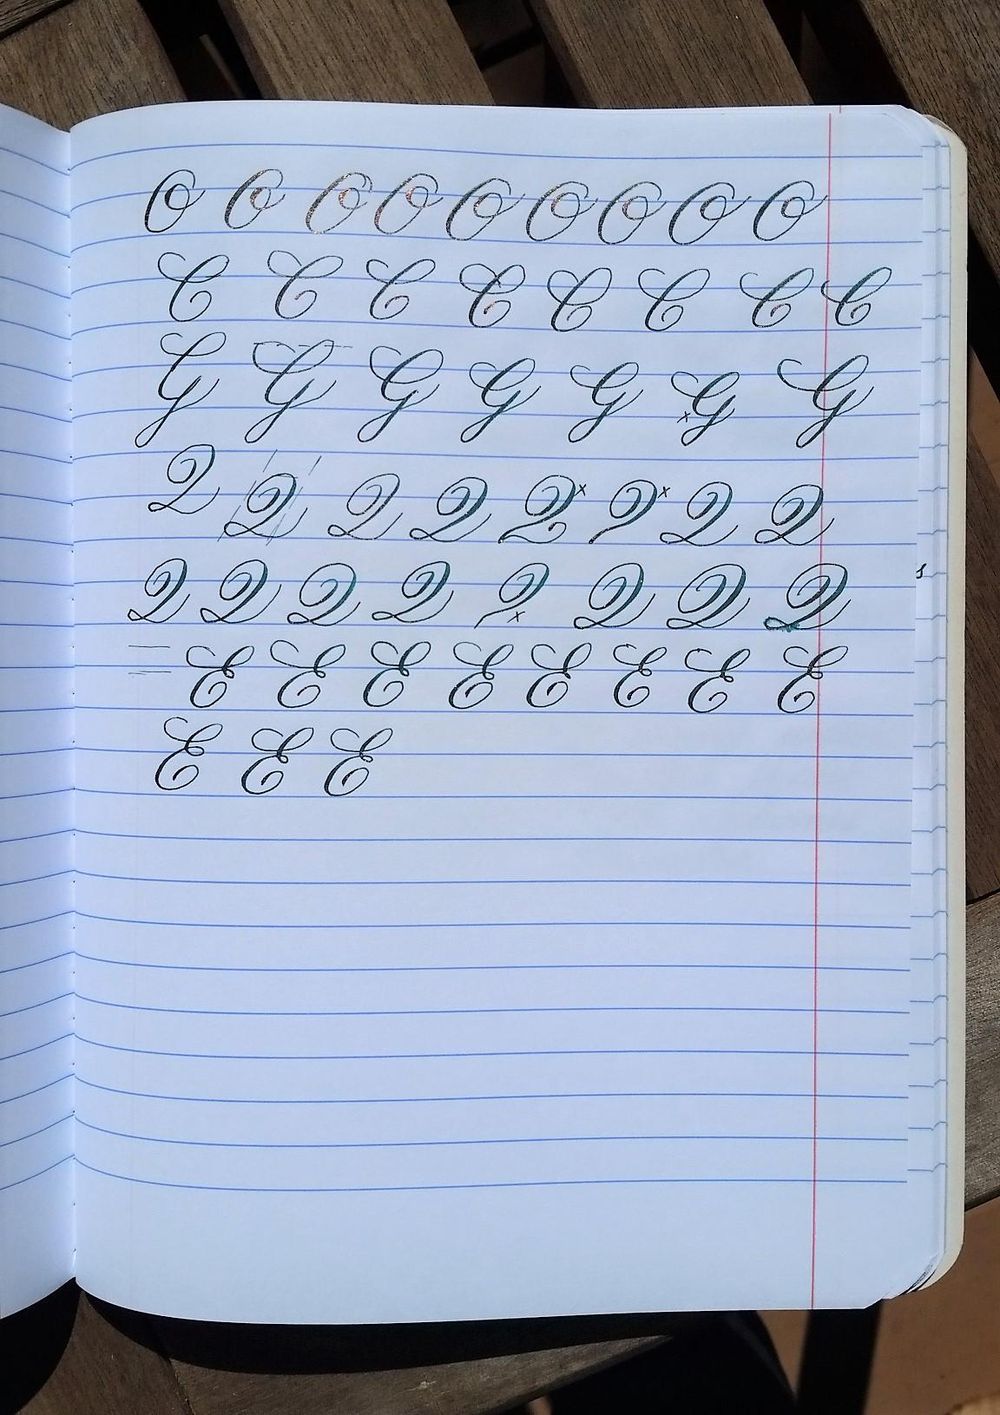 O O O O O O O O O
C C C C C C C C
G G G G G x G G
Q Q Q Q Q x Q x Q Q
Q Q Q Q Q x Q Q Q
E E E E E E E E
E E E